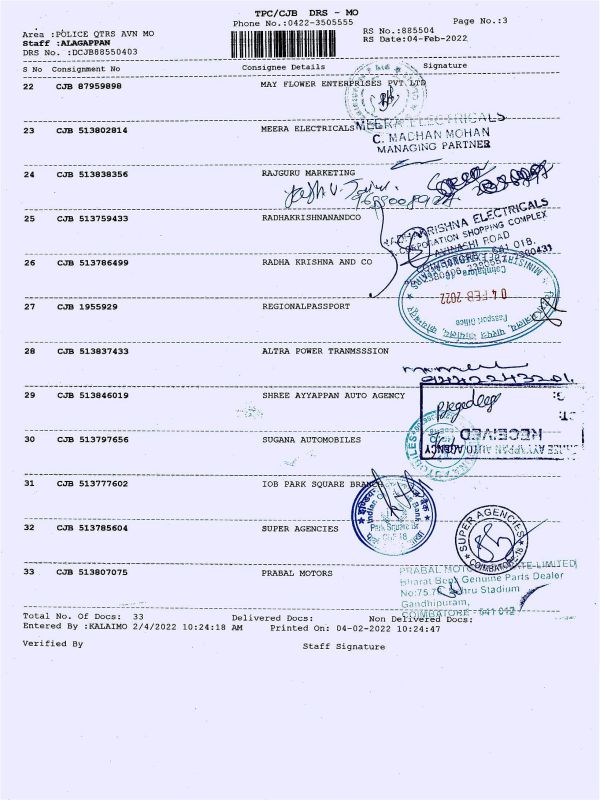 TPC/CJB DRS - MO
Phone No.:0422-3505555
Page No.:3
Area :POLICE QTRS AVN MO
RS No.:885504
Staff :ALAGAPPAN
RS Date:04-Feb-2022
DRS No. :DCJB88550403
S No Consignment No Consignee Details Signature
22 CJB 87959898 MAY FLOWER ENTERPRISES PVT LTD
23 CJB 513802814 MEERA ELECTRICALS
MEERA ELECTRICALS
C. MADHAN MOHAN
MANAGING PARTNER
24 CJB 513838356 RAJGURU MARKETING
25 CJB 513759433 RADHAKRISHNANANDCO
RADHAKRISHNA ELECTRICALS
CORPORATION SHOPPING COMPLEX
AVINASHI ROAD
26 CJB 513786499 RADHA KRISHNA AND CO
27 CJB 1955929 REGIONALPASSPORT
Coimbatore
04 FEB 2022
Passport Office
28 CJB 513837433 ALTRA POWER TRANMSSSION
29 CJB 513846019 SHREE AYYAPPAN AUTO AGENCY
RECEIVED
30 CJB 513797656 SUGANA AUTOMOBILES
31 CJB 513777602 IOB PARK SQUARE BRANCH
32 CJB 513785604 SUPER AGENCIES
SUPER AGENCIES
COIMBATORE-18
33 CJB 513807075 PRABAL MOTORS
PRABAL MOTORS PRIVATE LIMITED
Bharat Benz Genuine Parts Dealer
No:75.76 Nehru Stadium
Gandhipuram,
COIMBATORE - 641 012
Total No. Of Docs: 33 Delivered Docs: Non Delivered Docs:
Entered By :KALAIMO 2/4/2022 10:24:18 AM Printed On: 04-02-2022 10:24:47
Verified By Staff Signature